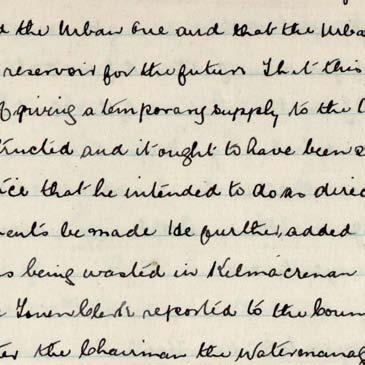 the Urban one and that the Urba
reservoir for the future That this
of giving a temporary supply to the
tructed and it ought to have been
ice that he intended to do as direc
ents be made He further, added
s being wasted in Kilmacrenan
Town Clerk reported to the Coun
ter the Chairman the Watermanag